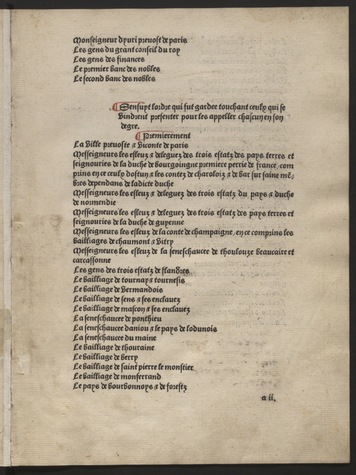 Monseigneur dyuri prevost de paris
Les gens du grant conseil du roy
Les gens des finances
Le premier banc des nobles
Le second banc des nobles
Sensuyt lordre qui fut gardee touchant ceulx qui se
vindrent presenter pour les appeller chascun en son
degre.
Premierement
La Ville prevoste & viconte de paris
Messeigneurs les esleuz & deleguez des trois estatz des pays terres et
seignouries de la duche de bourgoingne premiere perrie de france, com
prins en ce ceulx dostun & les contez de charolois & de bar sur saine mē
bres dependans de ladicte duche
Messeigneurs les esleuz & deleguez des trois estatz du pays & duche
de normendie
Messeigneurs les esleuz & deleguez des trois estatz des pays terres et
seignouries de la duche de guyenne
Messeigneurs les esleuz de la conte de champaigne, en ce comprins les
bailliages de chaumont & Vitry
Messeigneurs les esleuz de la seneschaucee de thoulouze beaucaire et
carcassonne
Les gens des trois estatz de flandres
Le bailliage de tournay & tournesis
Le bailliage de Vermandois
Le bailliage de sens & ses enclavez
Le bailliage de mascon & ses enclavez
La seneschaucee de ponthieu
La seneschaucee daniou & le pays de lodunois
La seneschaucee du maine
Le bailliage de thouraine
Le bailliage de berry
Le bailliage de saint pierre le monstier
Le bailliage de montferrand
Le pays de bourbonnoys & de forestz
a ii.